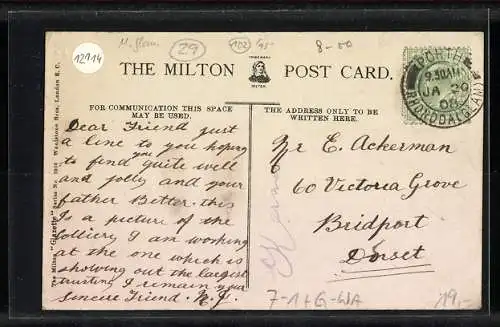 12914
M. Glam.
29
102
95
8-00
THE MILTON POST CARD.
FOR COMMUNICATION THIS SPACE
MAY BE USED.
THE ADDRESS ONLY TO BE
WRITTEN HERE.
PORTH
9.30AM
JA 29
08
RHONDDA (GLAM)
Dear Friend just
a line to you hoping
to find you quite well
and jolly and your
father Better. this
Is a picture of the
Colliery I am working
at the one which is
showing out the largest
trusting I remain your
sincere Friend. N.J.
Mr E. Ackerman
60 Victoria Grove
Bridport
Dorset
The Milton "Glazette" Series No. Woolstone Bros., London E.C.
7-1+G-WA
19,-